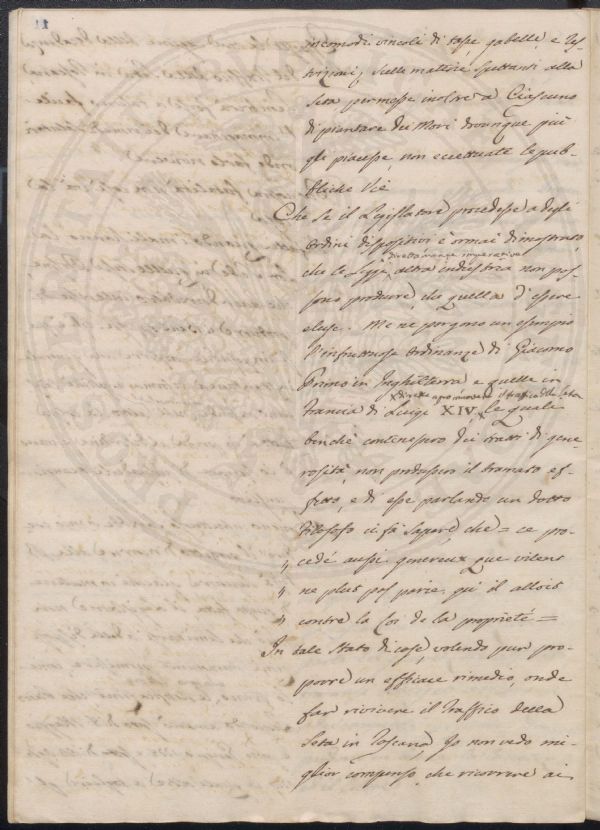 11
incomodi vincoli di tasse, gabelle, e re-
strizioni, sulle mattere spettanti alla
Seta permesse inoltre a Ciascuno
di piantare dei Mori drounque più
gli piacesse, non eccettuate le pub-
bliche Vie
Che se il Legislatore procedesse a degli
ordini dispositivi è ormai dimostrato,
direttamente imperative
che le leggi, altra industria non pos-
sono produrre, che quella d'essere
eluse. Me ne porgono un esempio
l'infruttuose ordinanze di Giacomo
Primo in Inghilterra e quelle in
X dirette a promuovere il traffico della Seta
Francia di Luigi XIV, X le quali
benchè contenessero dei tratti di gene-
rosità, non produssero il bramato ef-
fetto, e di esse parlando un dotto
Filosofo ci fà sapere, che = ce pro-
" cedé aussi genereux que violent
" ne plus pas parce qu'il alloit
" contre la Loi de la proprieté =
In tale stato di cose, volendo pur pro-
porre un efficace rimedio, onde
far rivivere il Traffico della
Seta in Toscana, Io non vedo mi-
glior compenso, che ricorrere ai